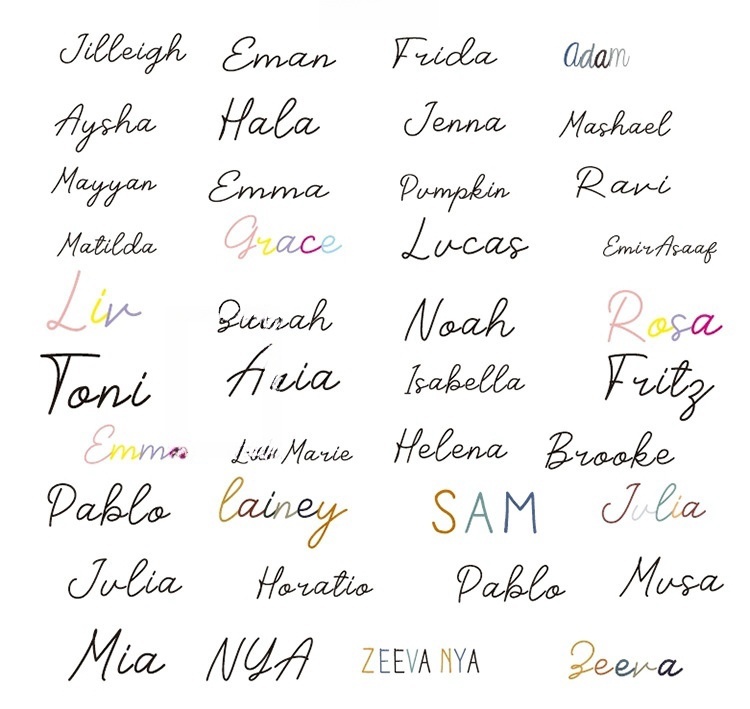 Jilleigh Eman Frida Adam
Aysha Hala Jenna Mashael
Mayyan Emma Pumpkin Ravi
Matilda Grace Lucas EmirAsaaf
Liv Noah Rosa
Toni Isabella Fritz
Emma Marie Helena Brooke
Pablo lainey SAM Julia
Julia Horatio Pablo Musa
Mia NYA ZEEVA NYA Zeeva